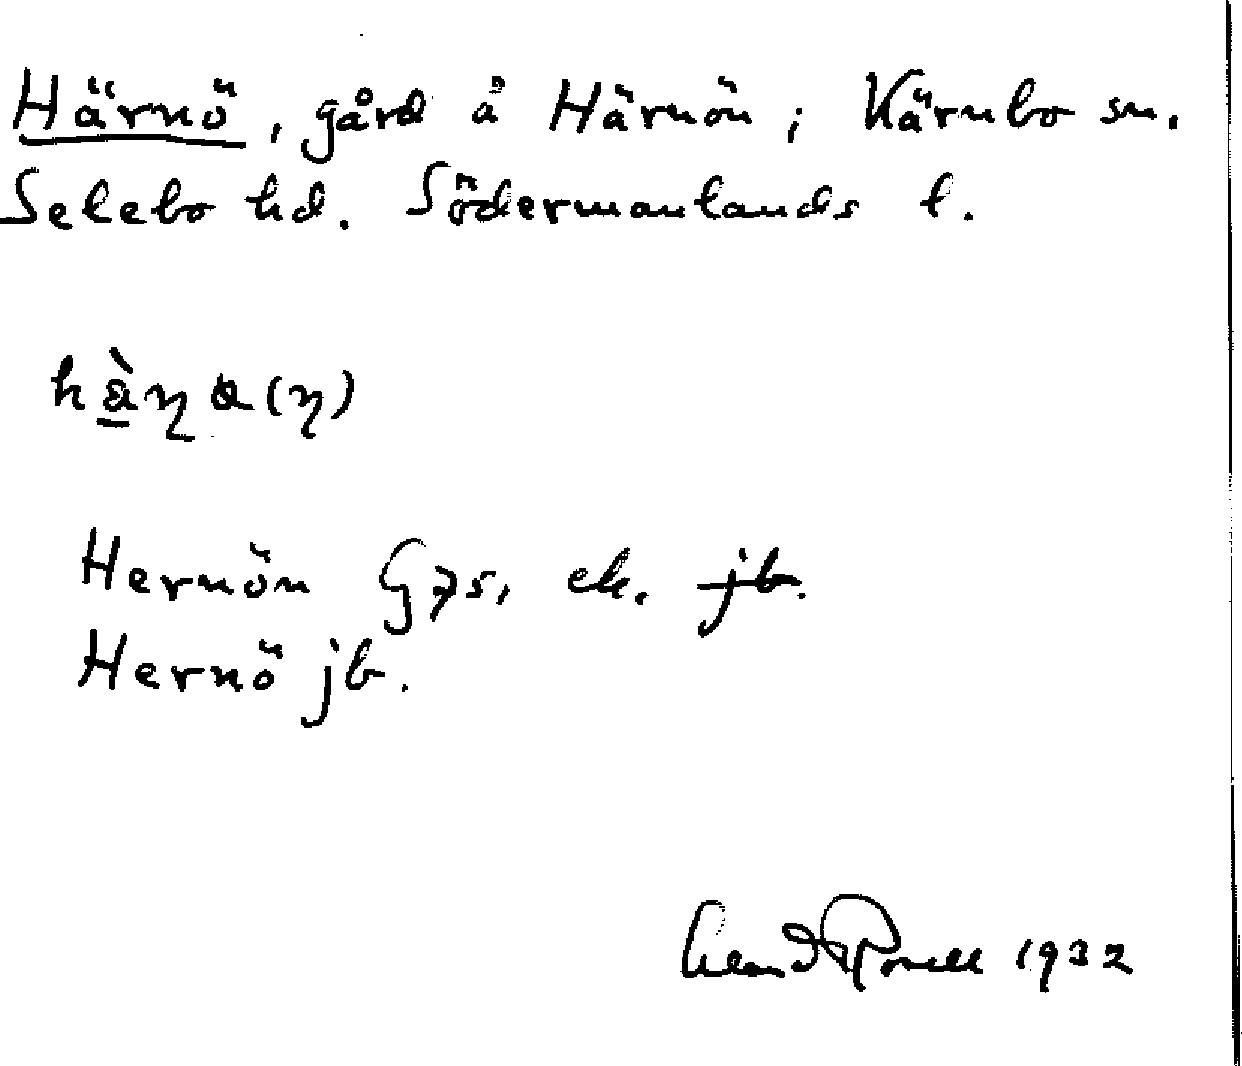 Härnö, gård å Härnön; Kärnbo sn.
Selebo hd. Södermanlands l.
Hernön G75, ek. jb.
Hernö jb.
1932